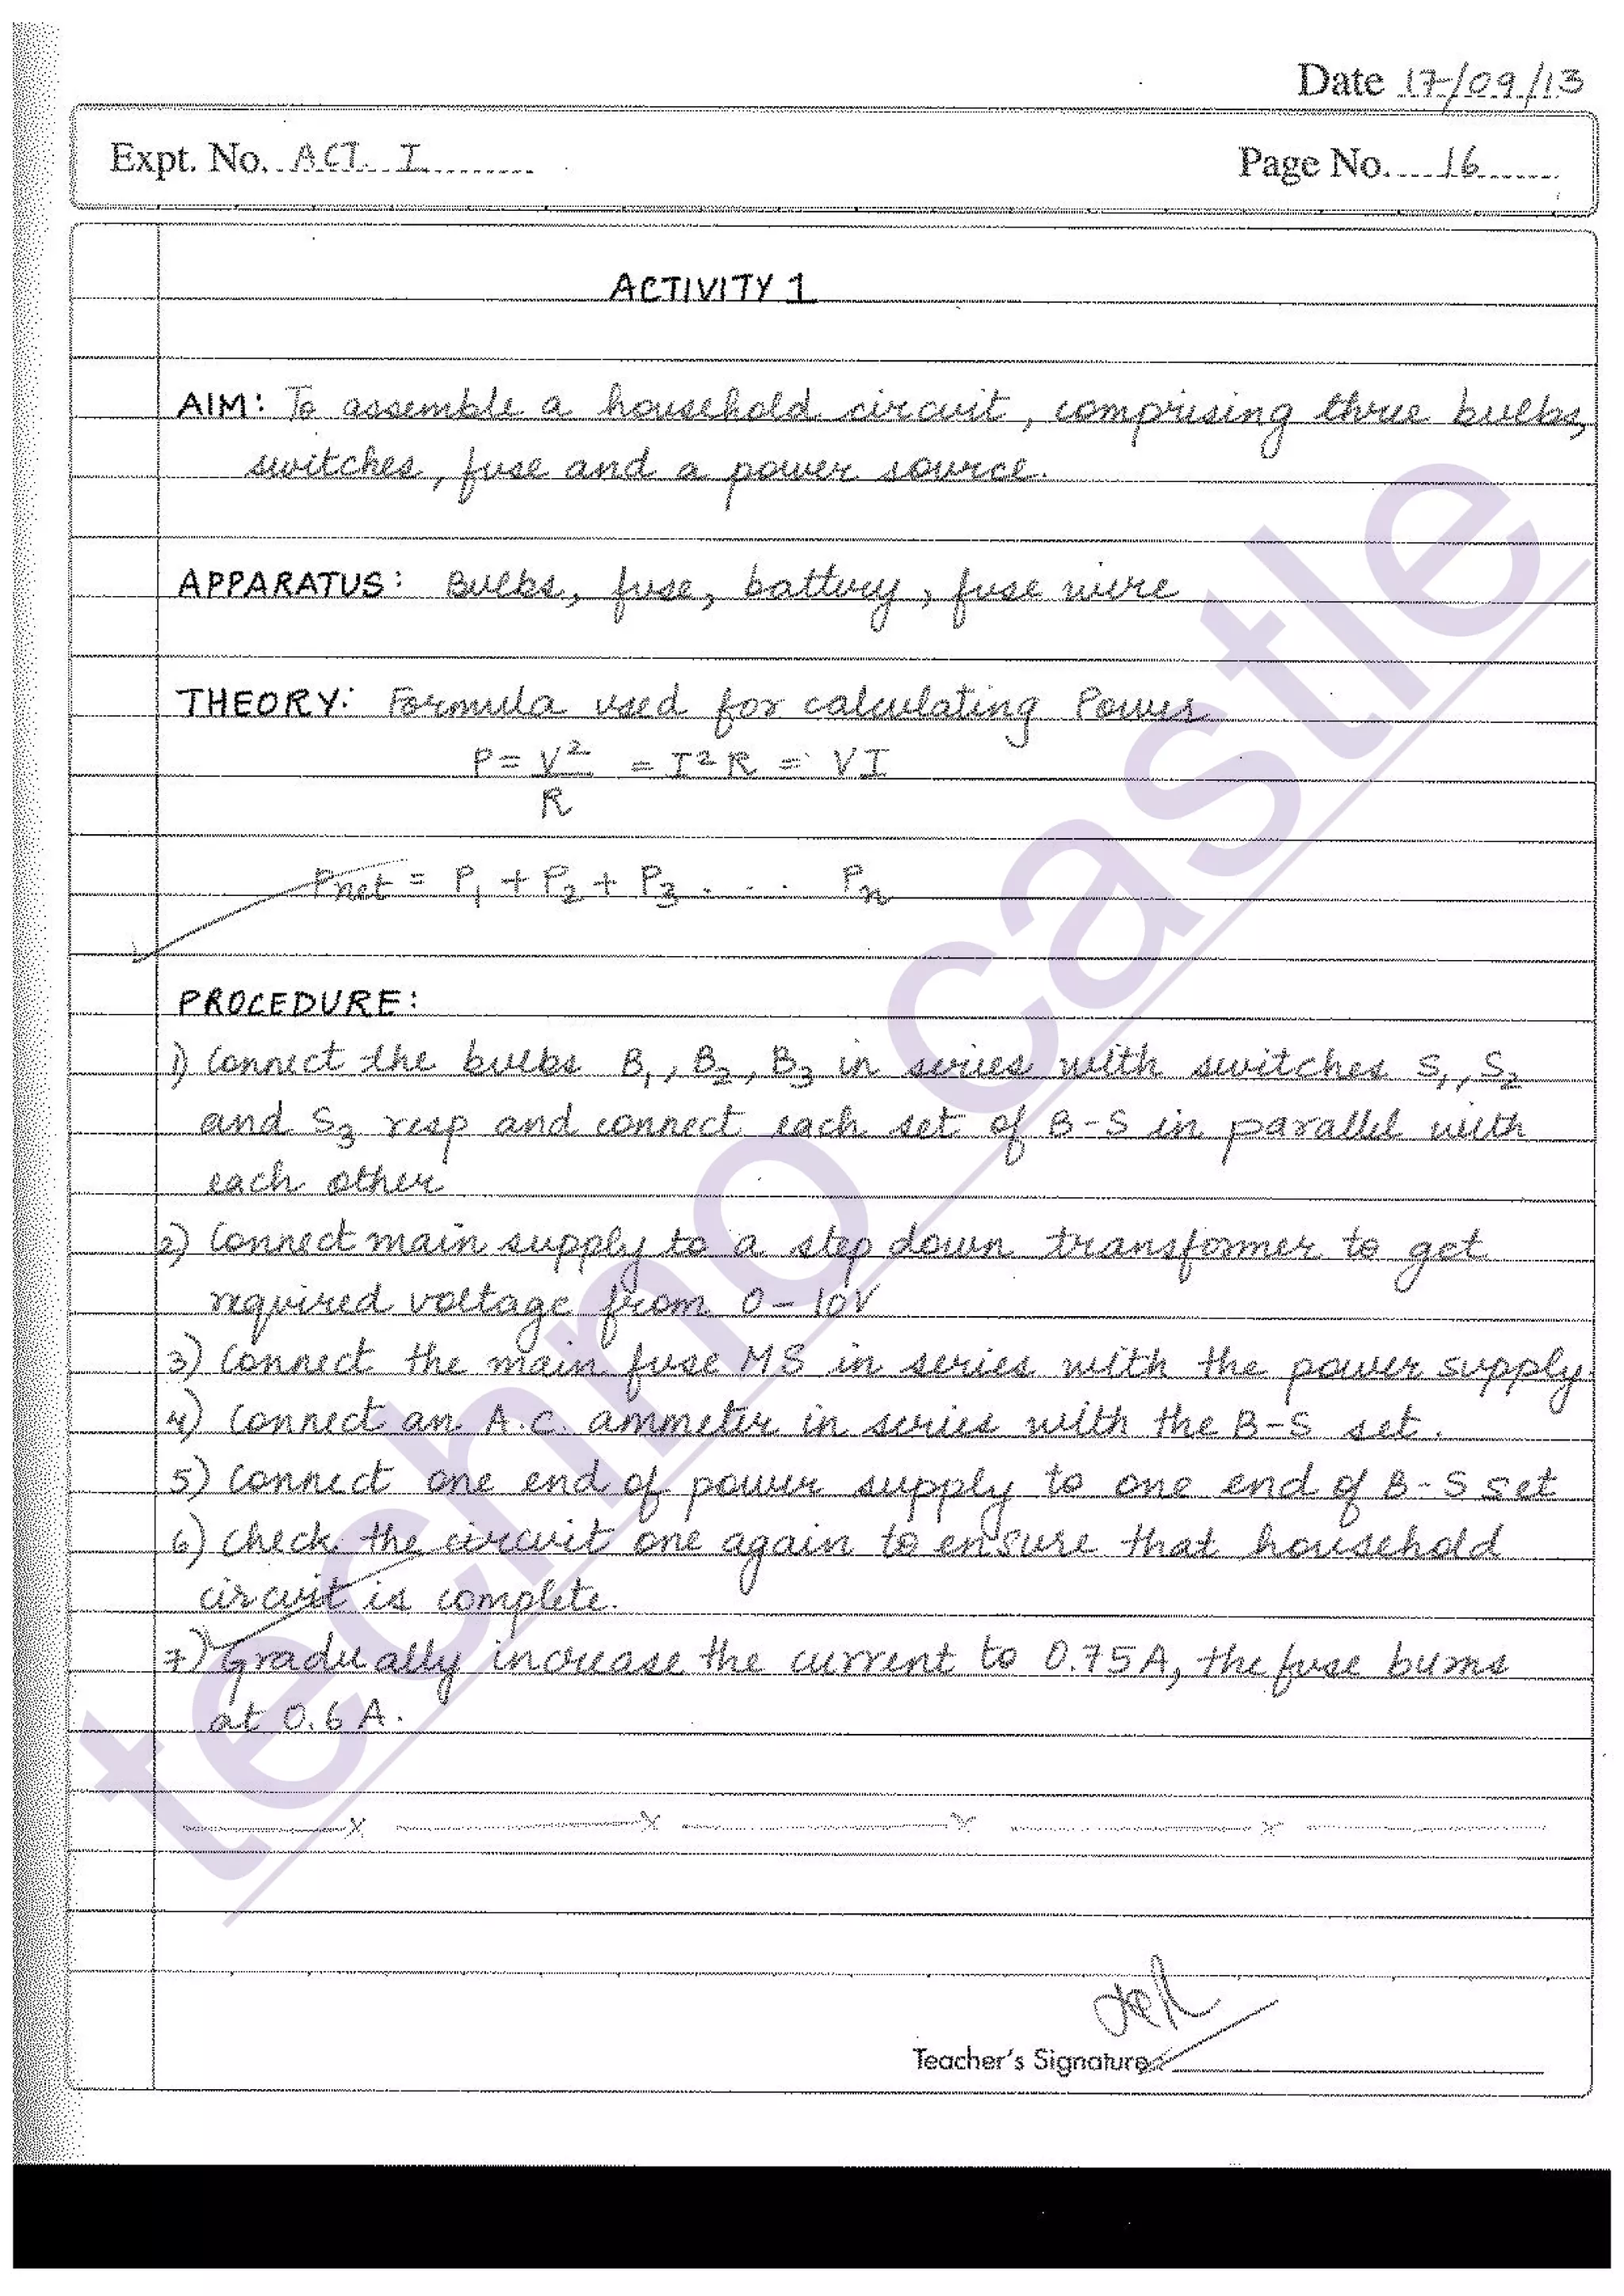 Date 17/09/13
Expt. No. ACT. I
Page No. 16
ACTIVITY 1
AIM: To assemble a household circuit, comprising three bulbs,
switches, fuse and a power source.
APPARATUS: Bulbs, fuse, battery, fuse wire
THEORY: Formula used for calculating Power
P = V²/R = I²R = VI
Pnet = P₁ + P₂ + P₃ . . . Pn
PROCEDURE:
1) Connect the bulbs B₁, B₂, B₃ in series with switches S₁, S₂
and S₃ resp and connect each set of B-S in parallel with
each other
2) Connect main supply to a step down transformer to get
required voltage from 0-10V
3) Connect the main fuse MS in series with the power supply.
4) Connect an A.C. ammeter in series with the B-S set.
5) Connect one end of power supply to one end of B-S set
6) Check the circuit one again to ensure that household
circuit is complete.
7) Gradually increase the current to 0.75A, the fuse burns
at 0.6 A.
x x x x
Teacher's Signature
techno castle